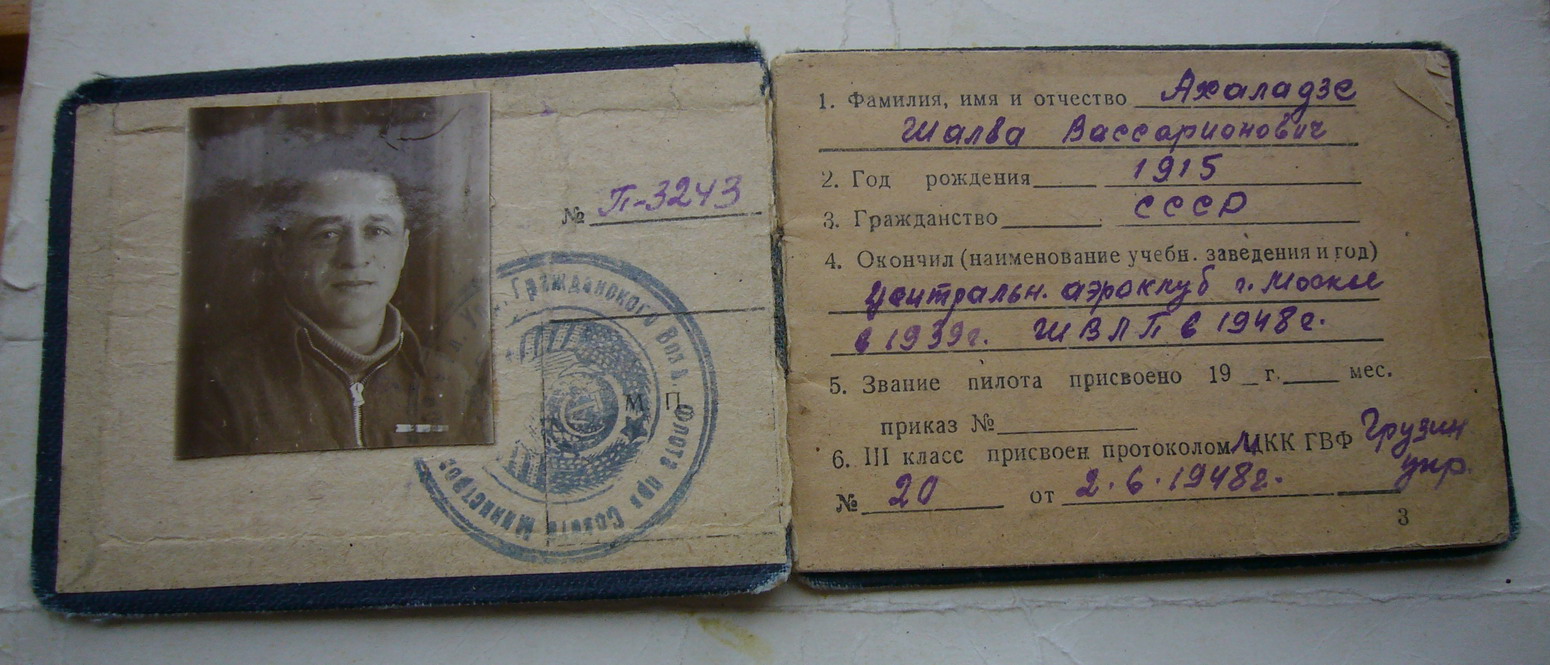 № П-3243
Гражданского Возд. Флота при Совете Министров
М П
1. Фамилия, имя и отчество Ахаладзе
Шалва Вассарионович
2. Год рождения 1915
3. Гражданство СССР
4. Окончил (наименование учебн. заведения и год)
Центральн. аэроклуб г. Москве
в 1939г. ШВЛП в 1948г.
5. Звание пилота присвоено 19 _ г. ___ мес.
приказ №
6. III класс присвоен протоколом МКК ГВФ Грузин
упр.
№ 20 от 2.6.1948г.
3